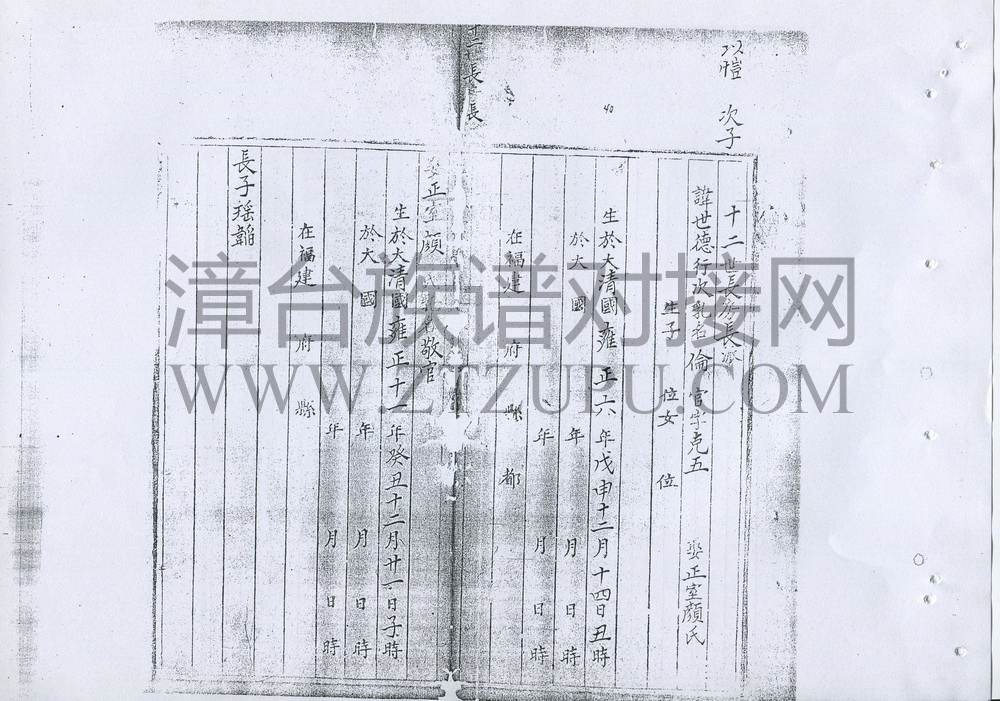 以愷 次子
40
十二世長房長派
諱世德行次乳名倫 官字克五 娶正室顏氏
生子 位女 位
生於大清國雍正六年戊申十二月十四日丑時
於大 國 年 月 日 時
年 月 日 時
在福建 府 縣 都
長 長
娶正室顏 氏 名敬官
生於大清國雍正十一年癸丑十二月廿一日子時
於大 國 年 月 日 時
年 月 日 時
在福建 府 縣
長子瑶韜
漳台族谱对接网
WWW.ZTZUPU.COM